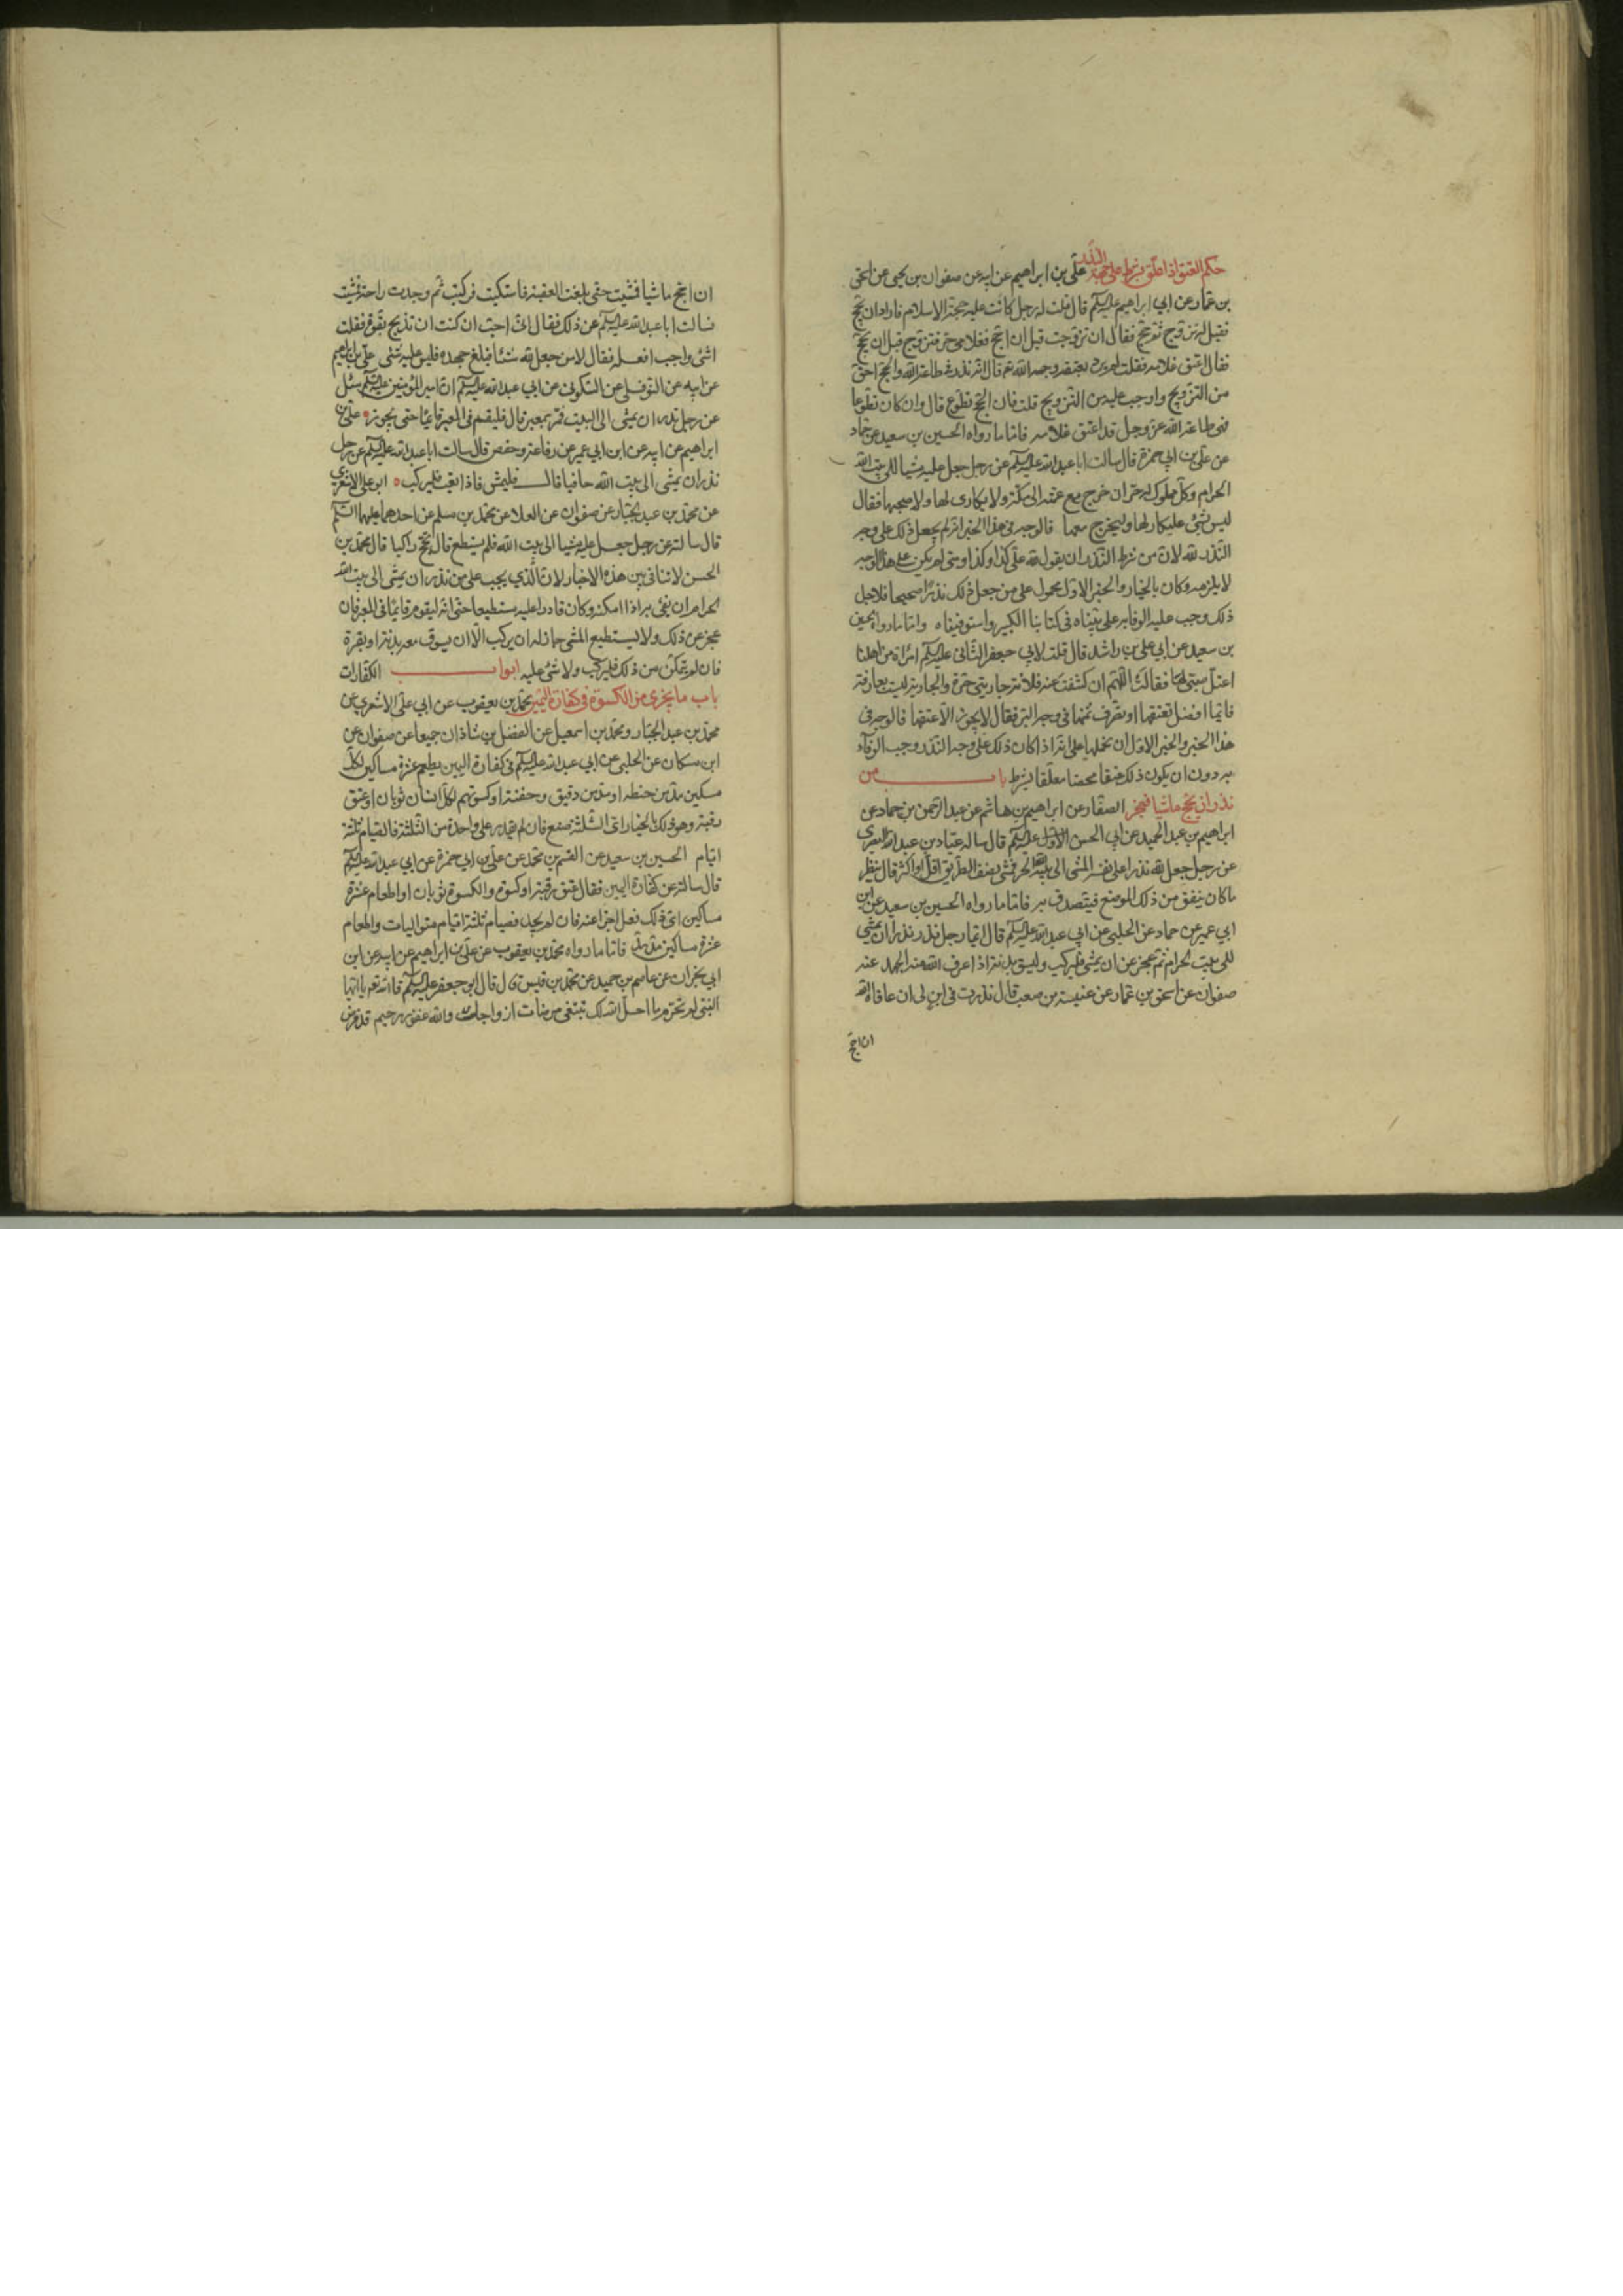 حكم العتق اذا علق بشرط على جهة النذر علي بن ابراهيم عن ابيه عن صفوان بن يحيى عن اسحق
بن عمار عن ابي ابراهيم عليه السلام قال قلت له رجل كانت عليه حجة الاسلام فاراد ان يحج
فقيل له تزوج ثم حج فقال ان تزوجت قبل ان احج فغلامي حر فتزوج قبل ان يحج
فقال اعتق غلامه فقلت لم يرد بعتقه وجه الله تع قال انه نذر في طاعة الله والحج احق
من التزويج واوجب عليه من التزويج قلت فان الحج تطوع قال وان كان تطوعا
فهي طاعة الله عز وجل قد اعتق غلامه فاما ما رواه الحسين بن سعيد عن حماد
عن علي بن ابي حمزة قال سالت ابا عبد الله عليه السلام عن رجل جعل عليه مشيا الى بيت الله
الحرام وكل مملوك له حر ان خرج مع عمته الى مكة ولا يكارى لها ولا صحبها فقال
ليس بشئ عليكار لها وليخرج معها فالوجه في هذا الخبر انه لم يجعل ذلك على وجه
النذر لله لان من شرط النذر ان يقول لله علي كذا وكذا ومتى لم يكن على هذا الوجه
لا يلزمه وكان بالخيار والخبر الاول محمول على من جعل ذلك نذرا صحيحا فلاجل
ذلك وجب عليه الوفا به على بيناه في كتابنا الكبير واستوفيناه واما ما رواه الحسين
بن سعيد عن ابي علي بن راشد قال قلت لابي جعفر الثاني عليه السلام امراة من اهلنا
اعتل صبي لها فقالت اللهم ان كشفت عنه فلانة جاريتي حرة والجارية ليست بعارفة
فايما افضل تعتقها او تصرف ثمنها في وجه البر فقال لا يجوز الا عتقها فالوجه في
هذا الخبر والخبر الاول ان نحملها على انه اذا كان ذلك على وجه النذر وجب الوفاء
به دون ان يكون ذلك عتقا محضا معلقا بشرط باب من
نذر ان يحج ماشيا فعجز الصفار عن ابراهيم بن هاشم عن عبد الرحمن بن حماد عن
ابراهيم بن عبد الحميد عن ابي الحسن الاول عليه السلام قال ساله عباد بن عبد الله البصري
عن رجل جعل لله نذرا على نفسه المشى الى بيت الله الحرام فمشى نصف الطريق اقل او اكثر قال ينظر
ما كان ينفق من ذلك الموضع فيتصدق به فاما ما رواه الحسين بن سعيد عن ابن
ابي عمير عن حماد عن الحلبي عن ابي عبد الله عليه السلام قال ايما رجل نذر نذرا ان يمشي
الى بيت الحرام ثم عجز عن ان يمشي فليركب وليسق بدنة اذا عرف الله منه الجهد عنه
صفوان عن اسحق بن عمار عن عنبسة بن مصعب قال نذرت في ابن لي ان عافاه الله
ان احج
ان احج ماشيا فمشيت حتى بلغت العقبة فاشتكيت فركبت ثم وجدت راحة فمشيت
فسالت ابا عبد الله عليه السلام عن ذلك فقال اني احب ان كنت ان تذبح بقرة فقلت
اشئ واجب افعله فقال لا من جعل لله شيئا فبلغ جهده فليس عليه شئى علي بن ابراهيم
عن ابيه عن النوفلي عن السكوني عن ابي عبد الله عليه السلام ان امير المؤمنين عليه السلام سئل
عن رجل نذر ان يمشى الى البيت فمر بمعبر قال فليقم في المعبر قايما حتى يجوزه علي بن
ابراهيم عن ابيه عن ابن ابي عمير عن رفاعة وحفص قال سالت ابا عبد الله عليه السلام عن رجل
نذر ان يمشى الى بيت الله حافيا قال فليمش فاذا تعب فليركب ابو علي الاشعري
عن محمد بن عبد الجبار عن صفوان عن العلا عن محمد بن مسلم عن احدهما عليهما السلام
قال سالته عن رجل جعل عليه مشيا الى بيت الله فلم يستطع قال يحج راكبا قال محمد بن
الحسن لا تنافي بين هذه الاخبار لان الذي يجب على من نذر ان يمشى الى بيت الله
الحرام ان يفي به اذا امكنه وكان قادرا عليه مستطيعا حتى انه ليقوم قايما في المعبر فان
عجز عن ذلك ولا يستطيع المشى جاز له ان يركب الا ان يسوق معه بدنة او بقرة
فان لم يتمكن من ذلك فليركب ولا شئ عليه ابواب الكفارات
باب ما يجزى من الكسوة في كفارة اليمين محمد بن يعقوب عن ابي علي الاشعري عن
محمد بن عبد الجبار ومحمد بن اسمعيل عن الفضل بن شاذان جميعا عن صفوان عن
ابن مسكان عن الحلبي عن ابي عبد الله عليه السلام في كفارة اليمين يطعم عشرة مساكين لكل
مسكين مد من حنطه او مد من دقيق وحفنة او كسوتهم لكل انسان ثوبان او عتق
رقبة وهو في ذلك بالخيار اى الثلثة صنع فان لم يقدر على واحدة من الثلثة فالصيام ثلثة
ايام الحسين بن سعيد عن القسم بن محمد عن علي بن ابي حمزة عن ابي عبد الله عليه السلام
قال سالته عن كفارة اليمين فقال عتق رقبة او كسوة والكسوة ثوبان او اطعام عشرة
مساكين اى ذلك فعل اجزا عنه فان لم يجد فصيام ثلثة ايام متواليات واطعام
عشرة مساكين مد مد فاما ما رواه محمد بن يعقوب عن علي بن ابراهيم عن ابيه عن ابن
ابي نجران عن عاصم بن حميد عن محمد بن قيس قال قال ابو جعفر عليه السلام قال الله تع يا ايها
النبي لم تحرم ما احل الله لك تبتغي مرضات ازواجك والله غفور رحيم قد فرض